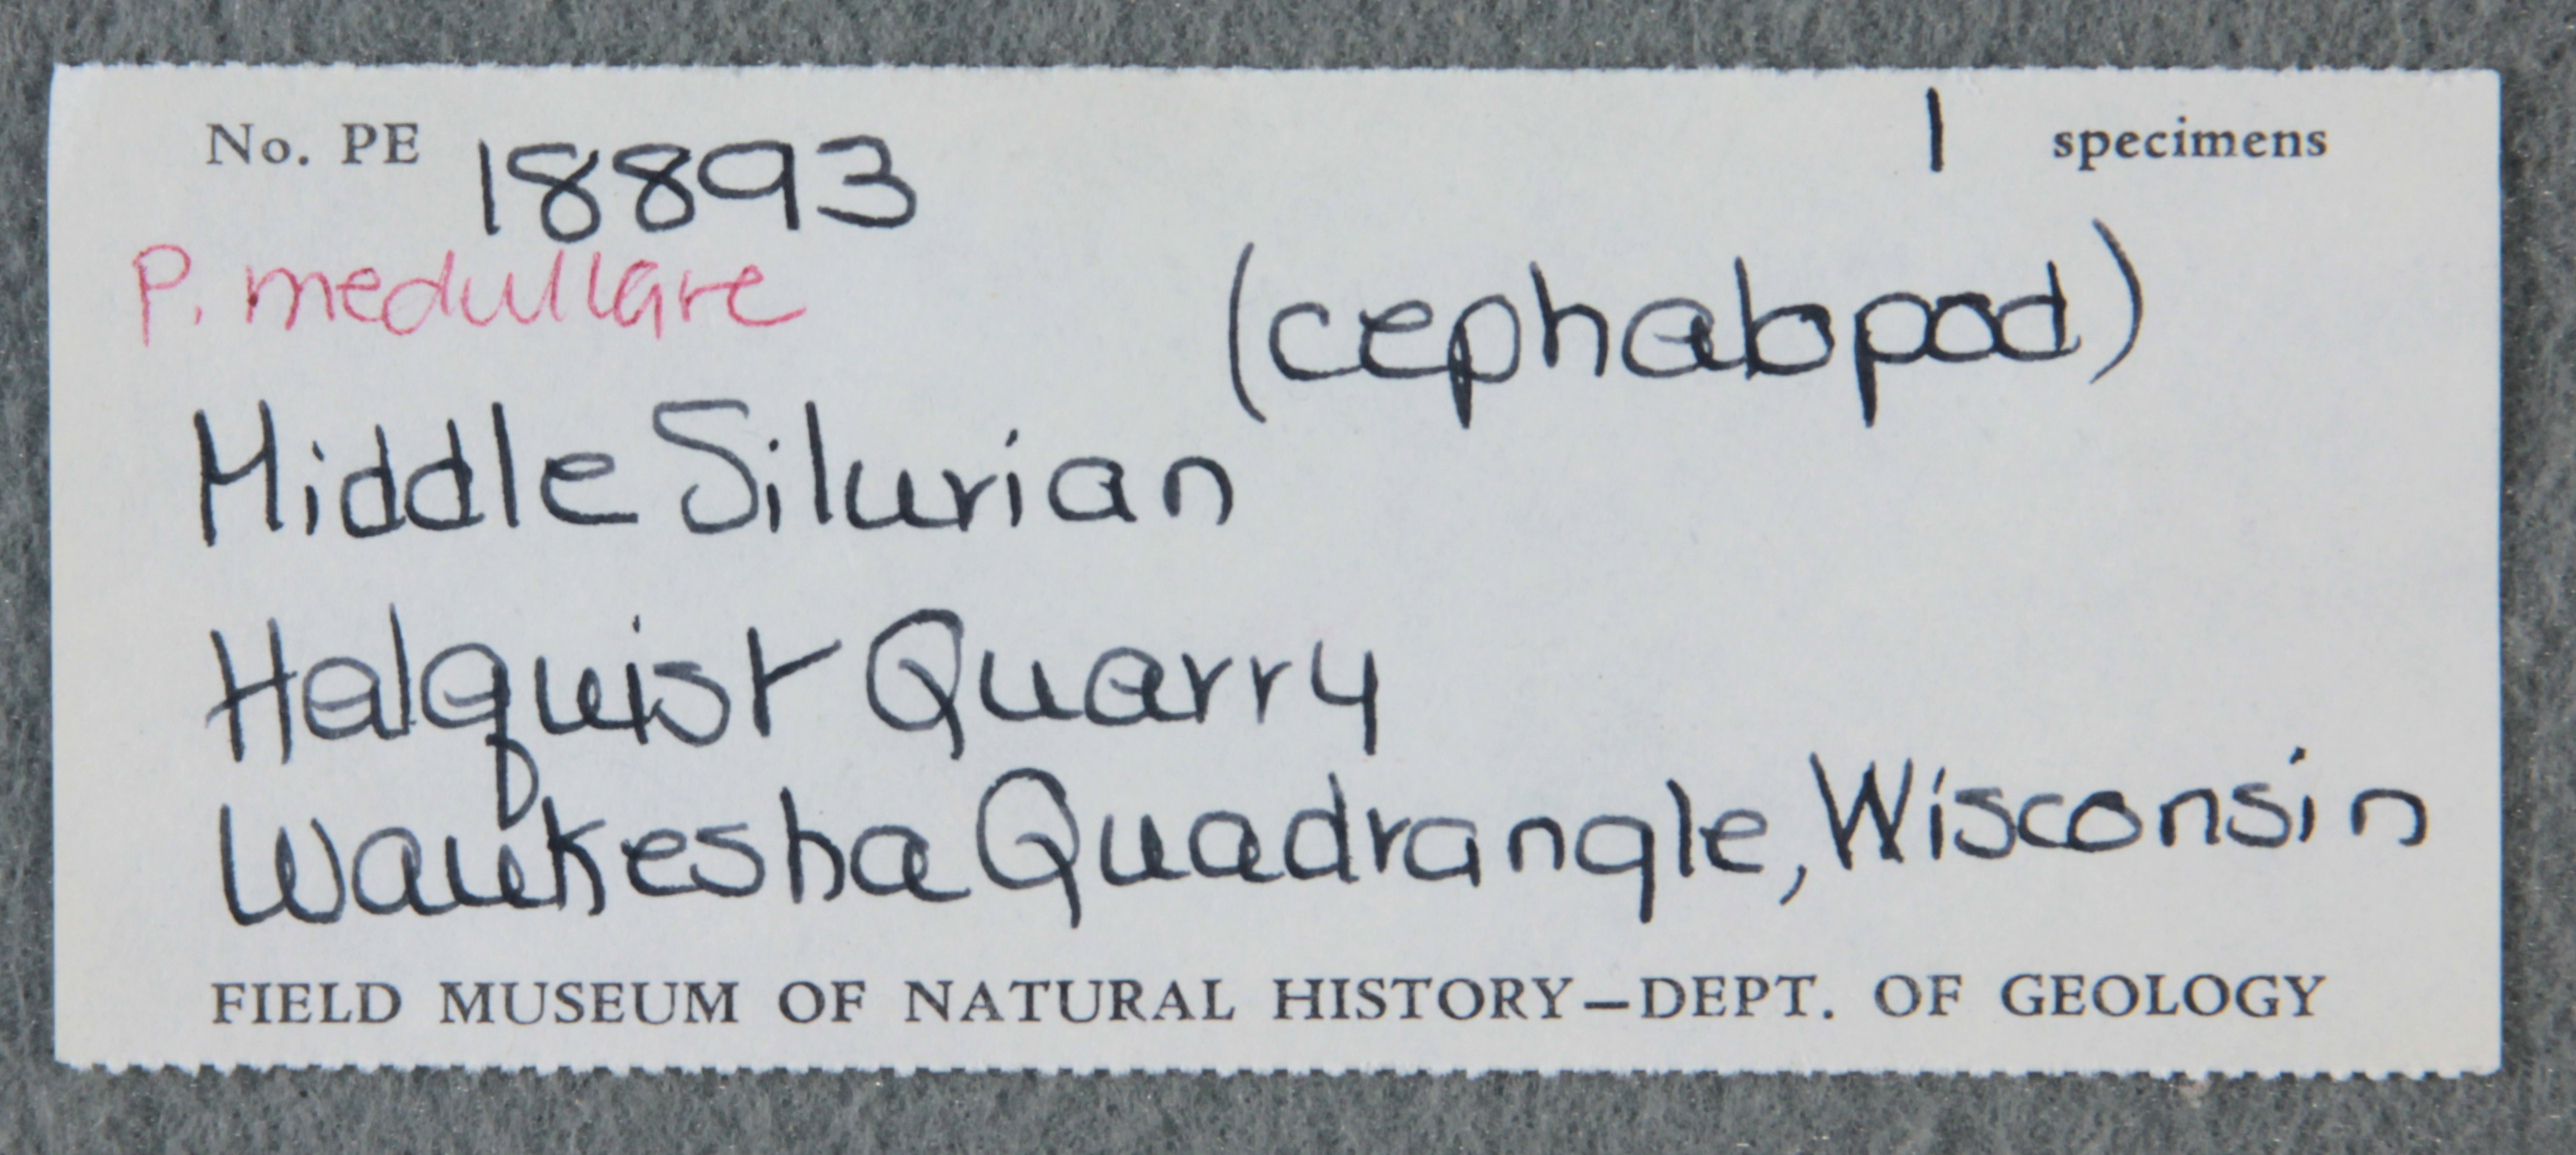 No. PE 18893 1 specimens
P. medullare (cephalopod)
Middle Silurian
Halquist Quarry
Waukesha Quadrangle, Wisconsin
FIELD MUSEUM OF NATURAL HISTORY—DEPT. OF GEOLOGY